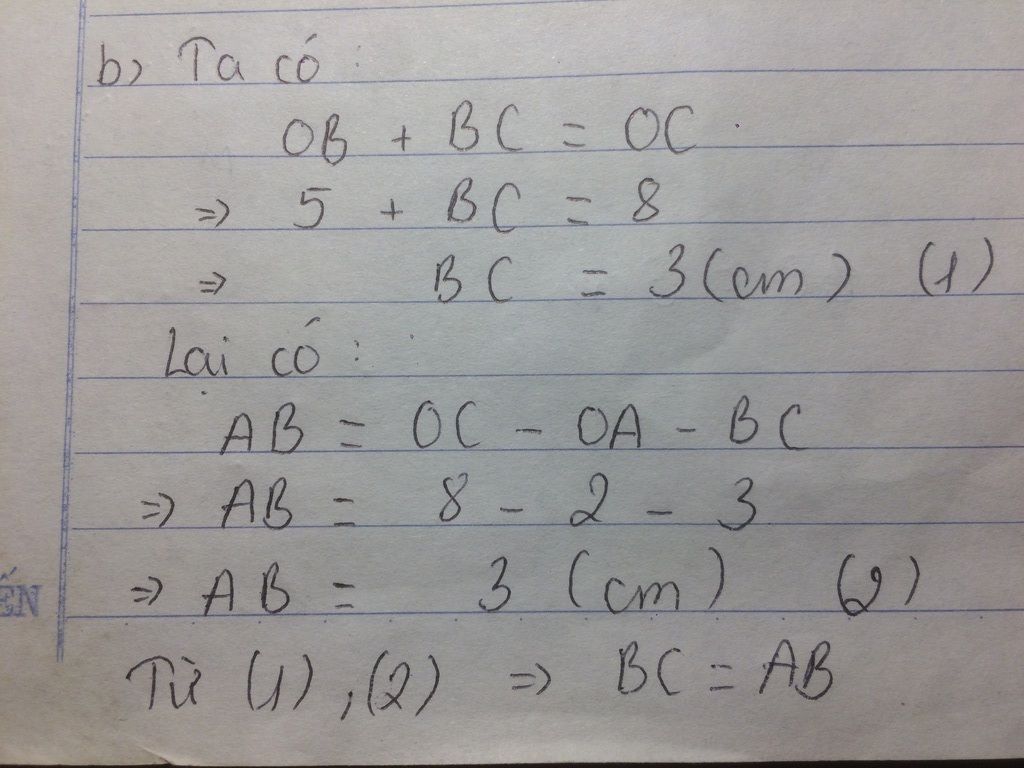 b) Ta có :
OB + BC = OC
=> 5 + BC = 8
=> BC = 3 (cm) (1)
Lại có :
AB = OC - OA - BC
=> AB = 8 - 2 - 3
=> AB = 3 (cm) (2)
ẾN
Từ (1), (2) => BC = AB